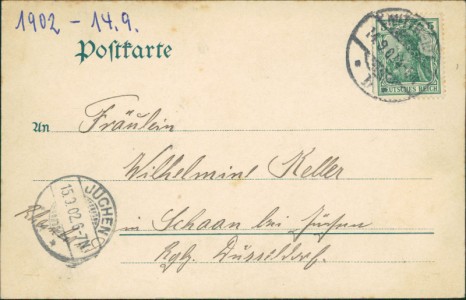 1902 - 14.9.
Postkarte
DEUTSCHES REICH
An
Fräulein
Wilhelmine Keller
in Schaan bei Jüchen
Rgbz. Düsseldorf.
JÜCHEN
15.9.02.6-7N